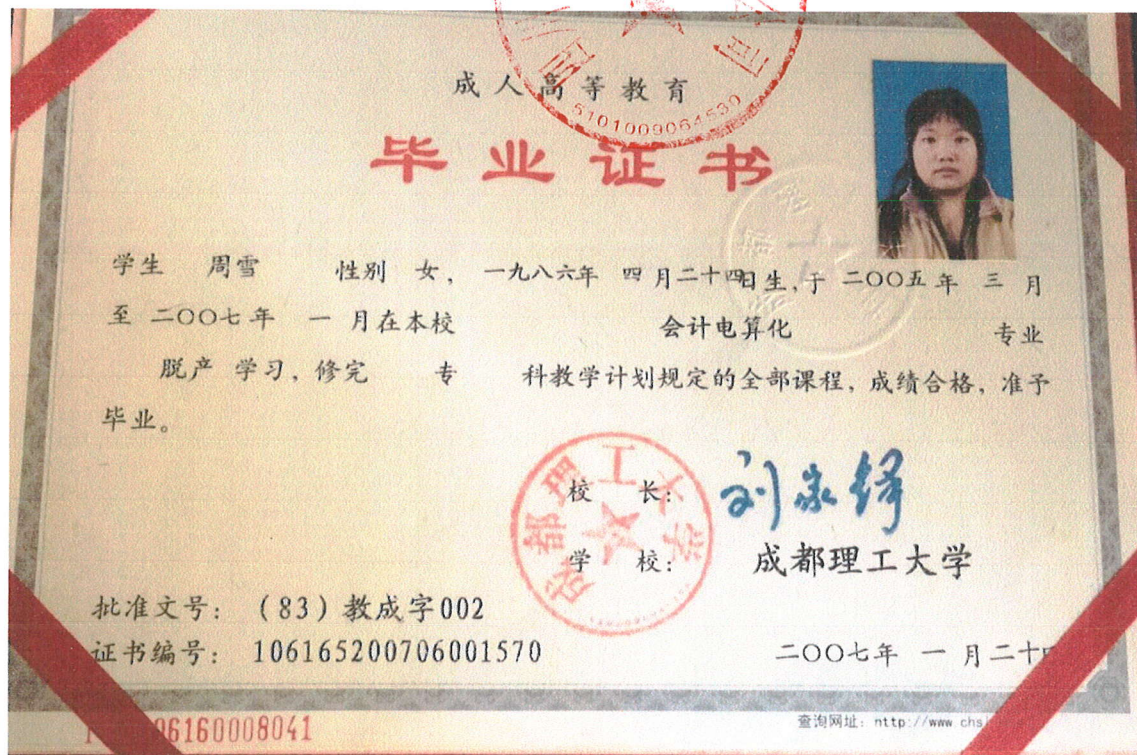 5101009064530
成人高等教育
毕业证书
学生 周雪 性别 女，一九八六年 四月二十四日生，于 二〇〇五年 三月
至 二〇〇七年 一月在本校 会计电算化 专业
脱产 学习，修完 专 科教学计划规定的全部课程，成绩合格，准予
毕业。
校 长： 刘家铎
学 校： 成都理工大学
成都理工大学
批准文号：（83）教成字002
证书编号： 106165200706001570
二〇〇七年 一月二十
06160008041
查询网址：http://www.chs